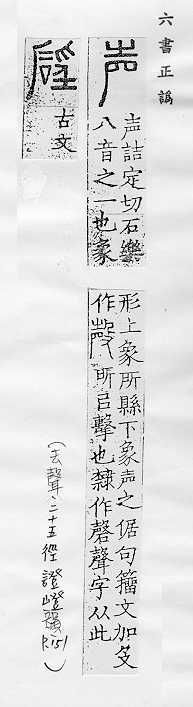 六書正譌
声詰定切石樂
八音之一也象
形上象所縣下象声之倨句籀文加殳
作殸所㠯擊也隸作磬聲字从此
古文
(去聲、二十五徑證嶝韻 P.151)